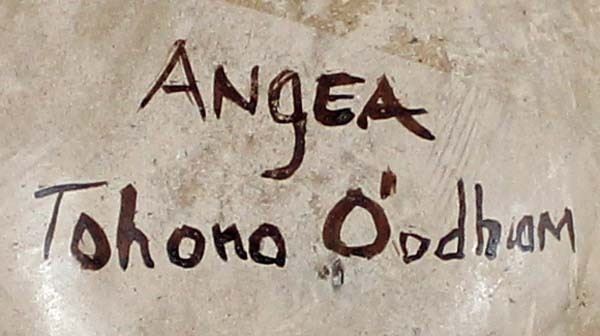 ANgEA
Tohono O'odham